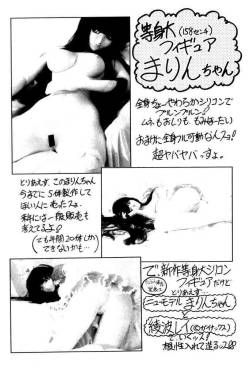 等身大(158センチ)
フィギュア
まりんちゃん
全身ぢゅーやわらかシリコンで
プルンプルン!
ムネもおしりも、もみほーだい
おまけに全身フル可動
超ヤバヤバっすょ。
とりあえず、このまりんちゃん
今までに5体製作して
ほしい人に売ったョ。
秋には一般販売も
考えてるょ!
(でも年間20体しか
できないかも…)
で新作等身大シリコン
フィギュアだけど
とりあえず…
ニューモデル まりんちゃん
と
綾波レイ
でいくッス!
根性入れて造るッス